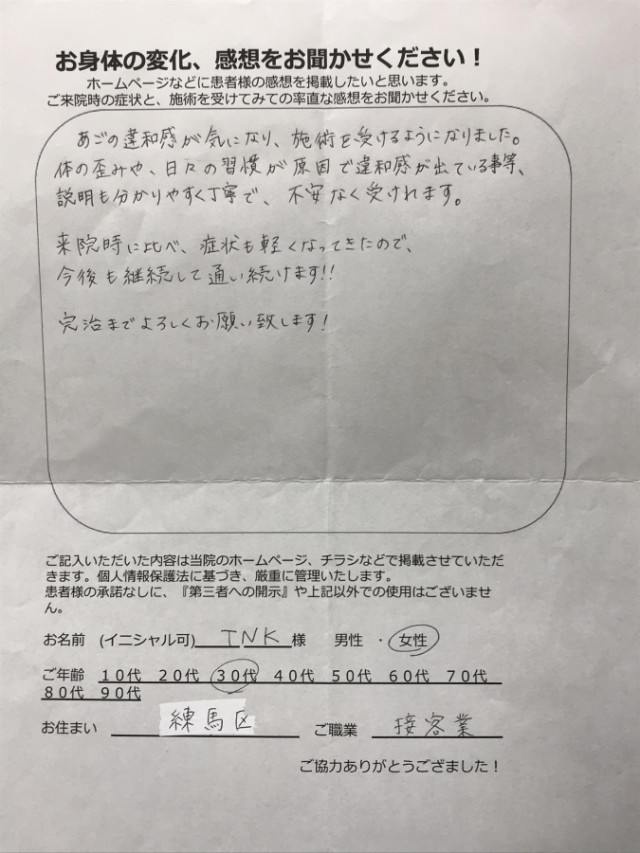 お身体の変化、感想をお聞かせください！
ホームページなどに患者様の感想を掲載したいと思います。
ご来院時の症状と、施術を受けてみての率直な感想をお聞かせください。
あごの違和感が気になり、施術を受けるようになりました。
体の歪みや、日々の習慣が原因で違和感が出ている事等、
説明も分かりやすく丁寧で、不安なく受けれます。
来院時に比べ、症状も軽くなってきたので、
今後も継続して通い続けます!!
完治までよろしくお願い致します!
ご記入いただいた内容は当院のホームページ、チラシなどで掲載させていただ
きます。個人情報保護法に基づき、厳重に管理いたします。
患者様の承諾なしに、『第三者への開示』や上記以外での使用はございませ
ん。
お名前 (イニシャル可) INK 様 男性 ・ 女性
ご年齢 10代 20代 30代 40代 50代 60代 70代
80代 90代
お住まい 練馬区 ご職業 接客業
ご協力ありがとうござました！